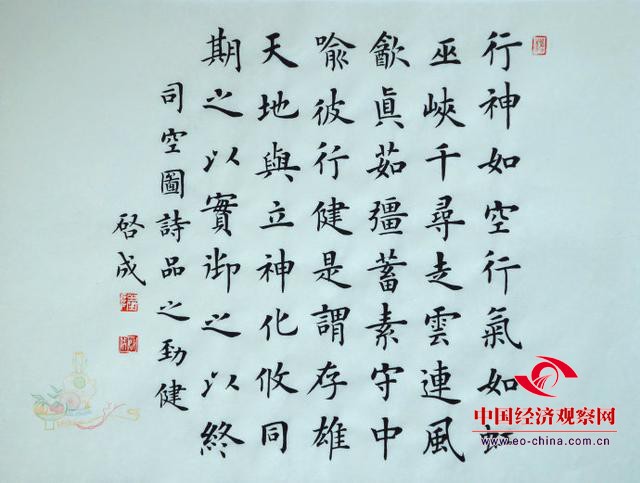 行神如空行氣如虹
巫峽千尋走雲連風
㱃眞茹彊蓄素守中
喻彼行健是謂存雄
天地與立神化攸同
期之以實御之以終
司空圖詩品之勁健
啓成
中国经济观察网
www.eo-china.com.cn